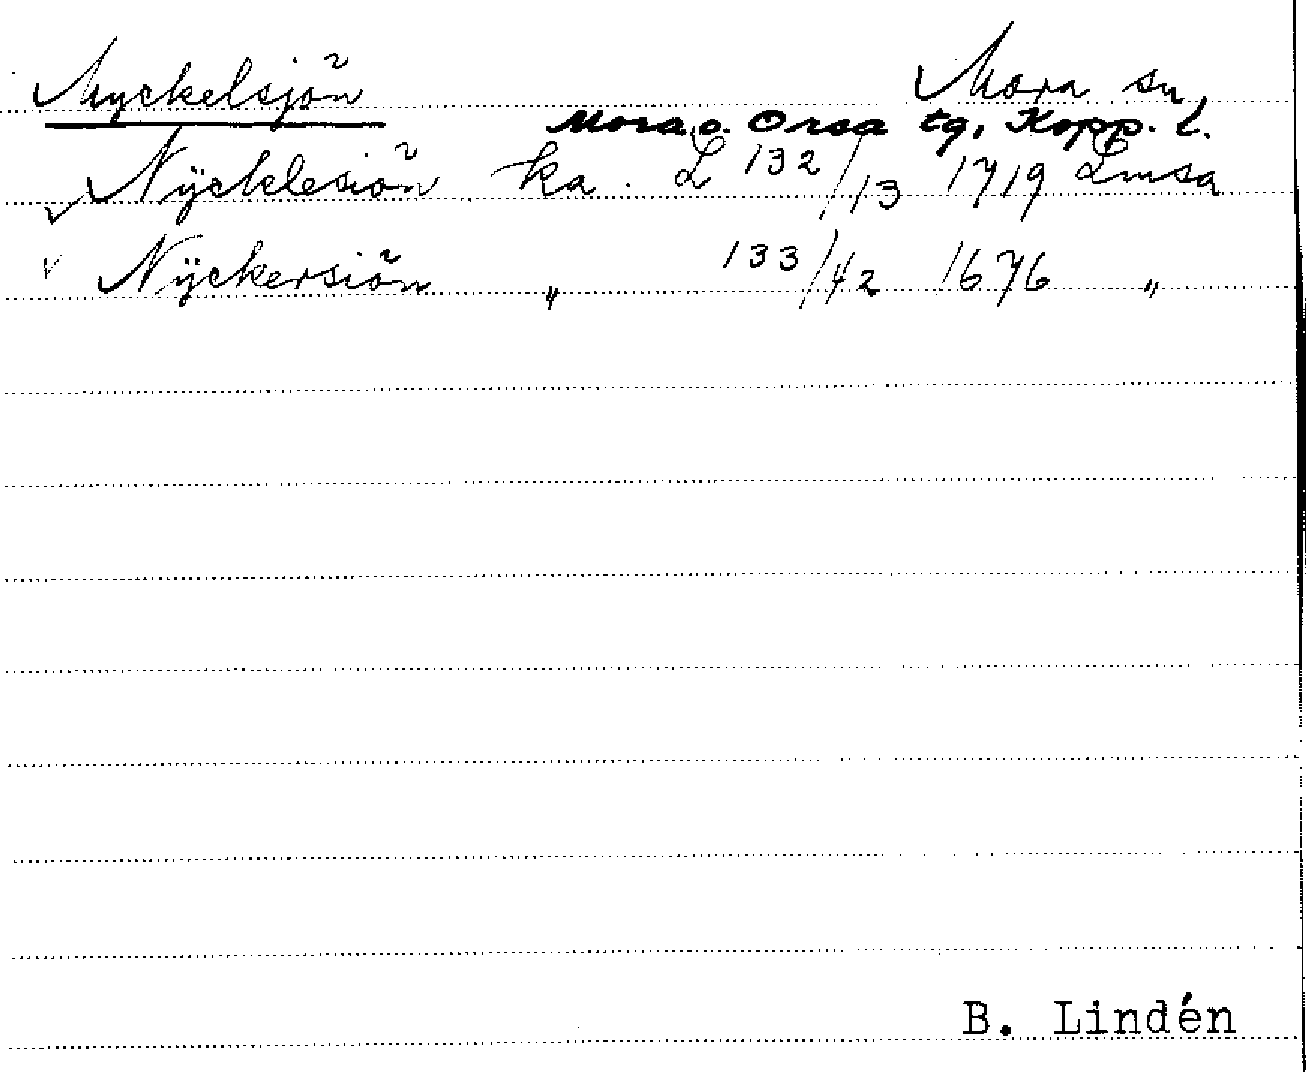 Myckelsjön Mora sn,
Mora o. Orsa tg, Kopp. l.
√ Nÿcklesiön ka. L 132/13 1719 Lmsa
√ Nÿckersiön " 133/42 1676 "
B. Lindén